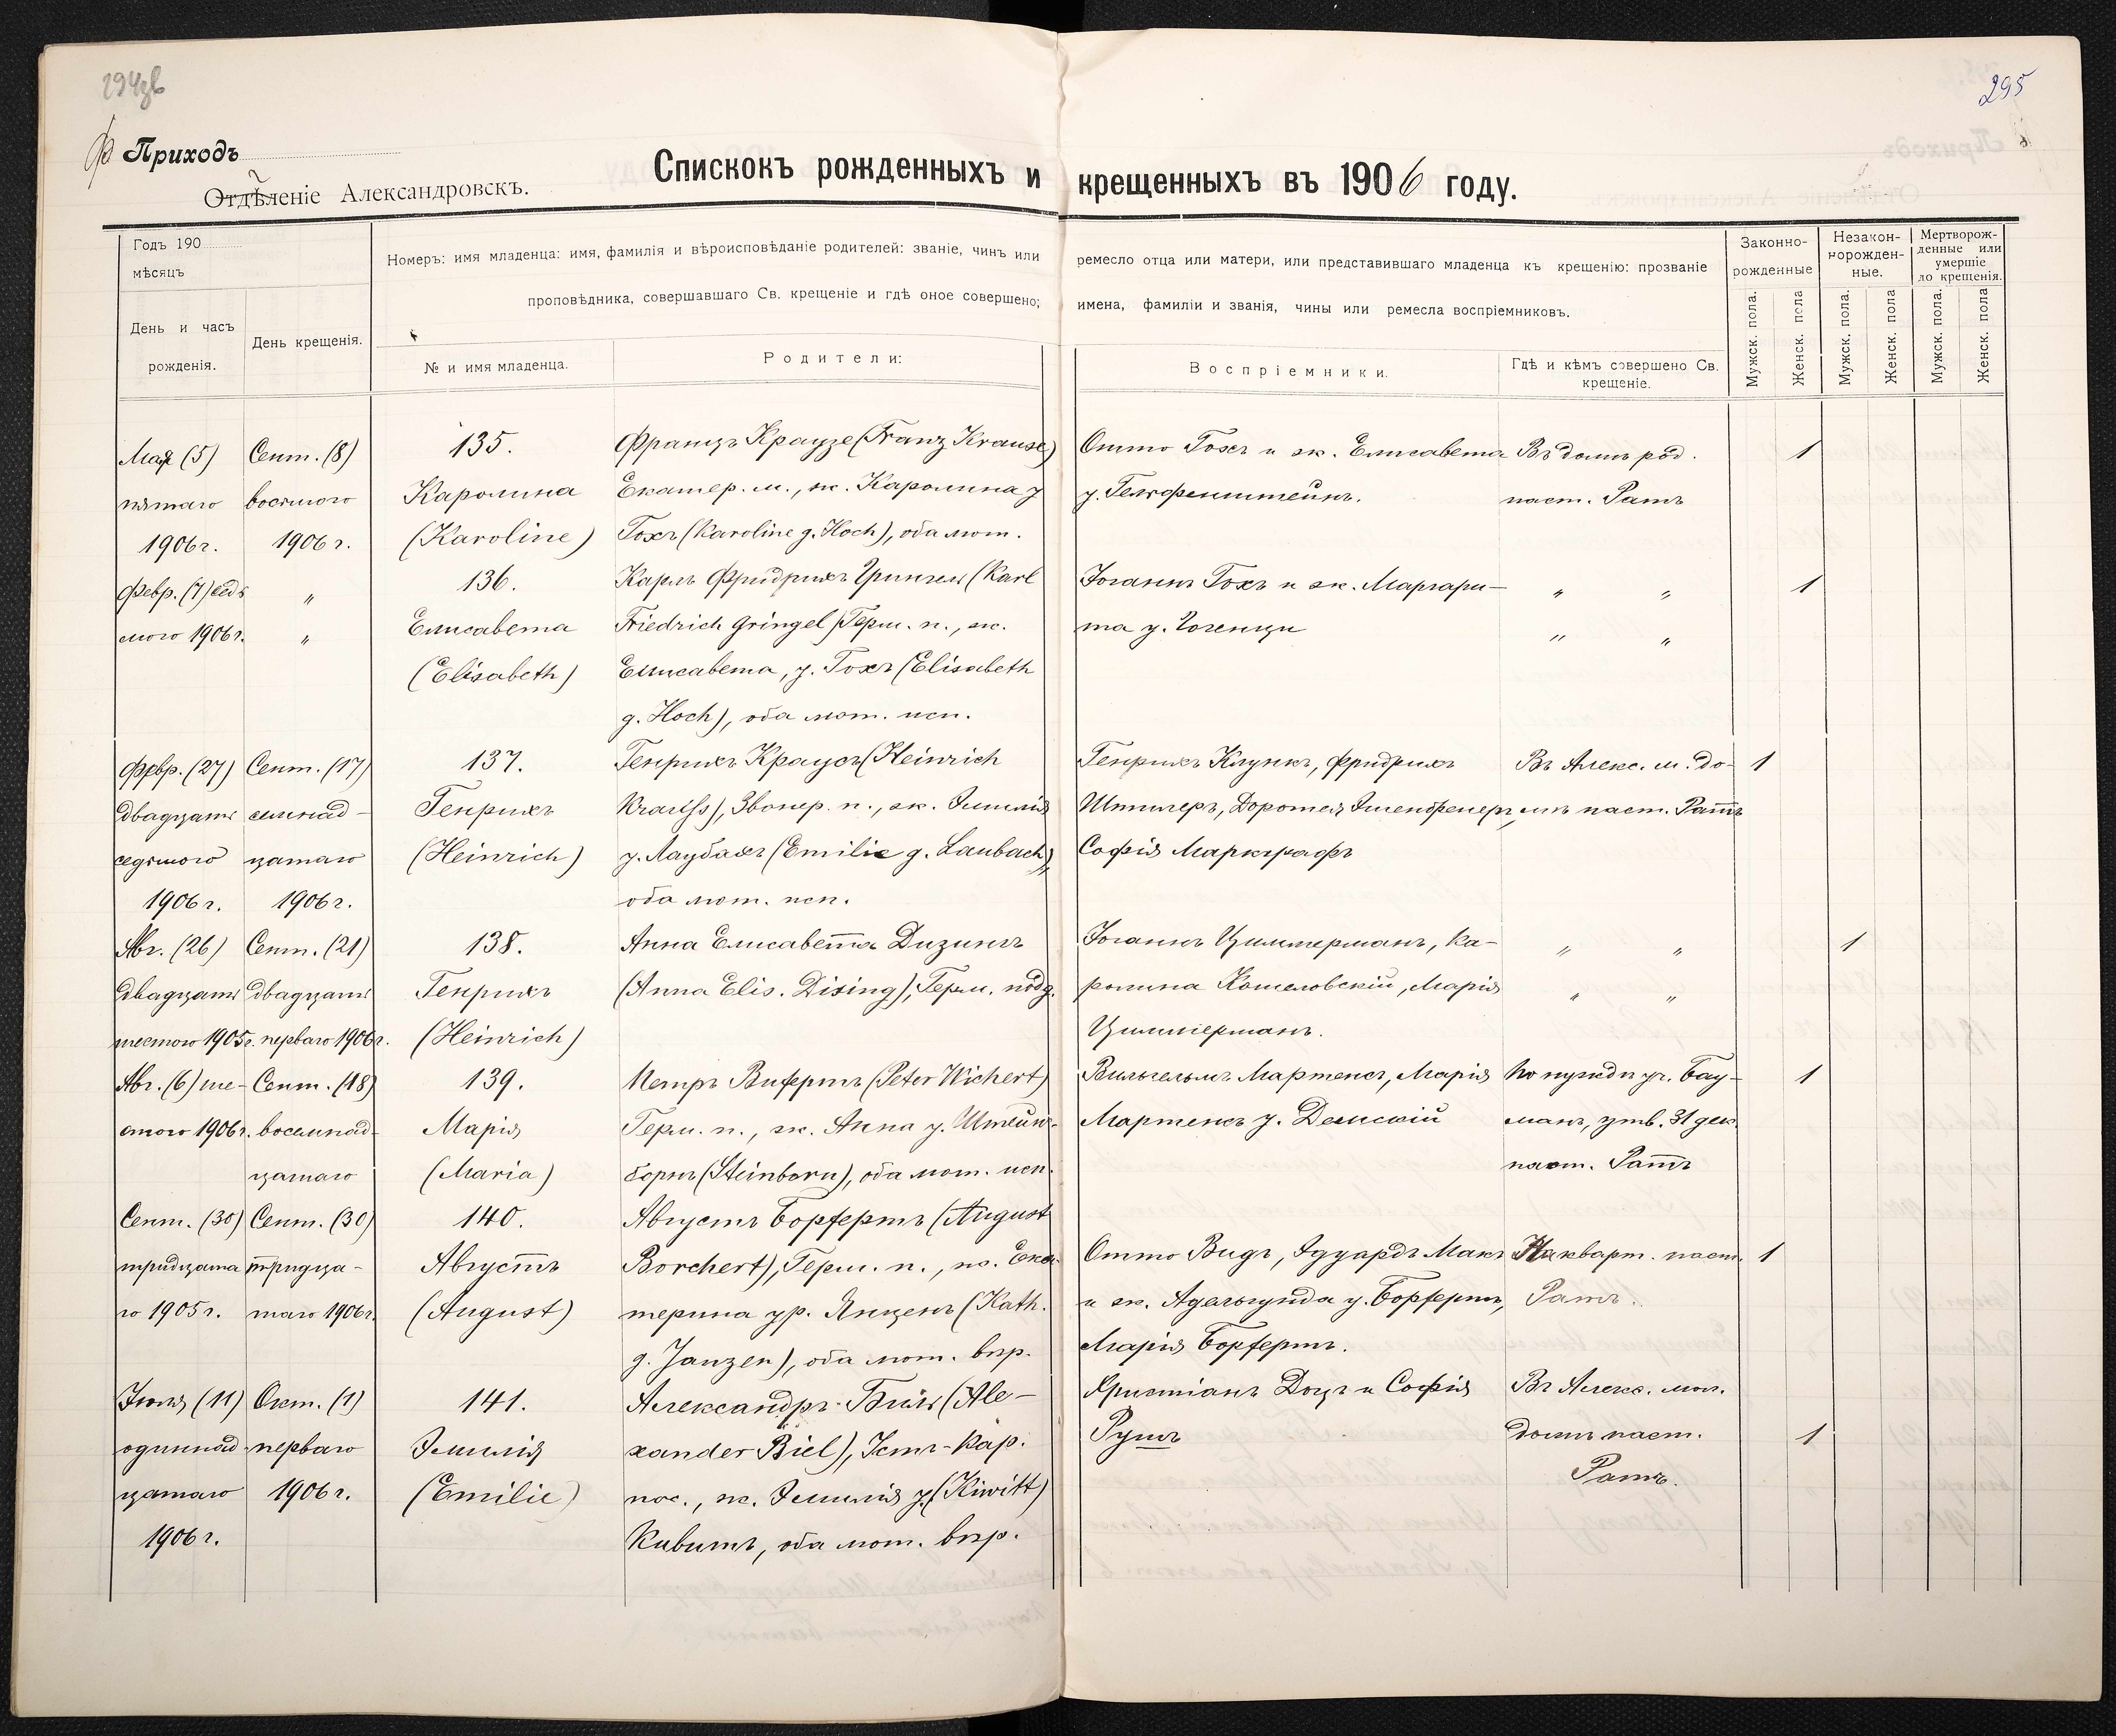 295
Приходъ
Отдѣленіе Александровскъ.
Спискокъ рожденныхъ и крещенныхъ въ 1906 году.
Годъ 190
мѣсяцъ
День и часъ
рожденія.
День крещенія.
Номеръ: имя младенца: имя, фамилія и вѣроисповѣданіе родителей: званіе, чинъ или
проповѣдника, совершавшаго Св. крещеніе и гдѣ оное совершено;
№ и имя младенца.
Родители:
ремесло отца или матери, или представившаго младенца къ крещенію: прозваніе
имена, фамиліи и званія, чины или ремесла воспріемниковъ.
Воспріемники.
Гдѣ и кѣмъ совершено Св.
крещеніе.
Законно-
рожденные
Незакон-
норожден-
ные.
Мертворож-
денные или
умершіе
до крещенія.
Мужск. пола.
Женск. пола
Мужск. пола.
Женск. пола
Мужск. пола.
Женск. пола
Мая (5)
пятаго
1906 г.
Сент. (8)
восьмого
1906 г.
135.
Каролина
(Karoline)
Францъ Краузе (Franz Krause)
Екатер. м., ж. Каролина у
Гохъ (Karoline g. Hoch), оба лют.
Отто Гохъ и ж. Елисавета
у.
Въ домѣ род.
паст. Ратъ
1
Февр. (7) седь
мого 1906 г.
"
"
136.
Елисавета
(Elisabeth)
Карлъ Фридрихъ Грингель (Karl
Friedrich Gringel) Герм. п., ж.
Елисавета, у. Гохъ (Elisabeth
g. Hoch), оба лют. исп.
Іоганнъ Гохъ и ж. Маргари-
та у.
" "
" "
1
Февр. (27)
двадцать
седьмого
1906 г.
Сент. (17)
семнад-
цатаго
1906 г.
137.
Генрихъ
(Heinrich)
Генрихъ Краусъ (Heinrich
Krauss), Звонер. п., ж. Эмилія
у. Лаубахъ (Emilie g. Laubach),
оба лют. исп.
Генрихъ Клункъ, Фридрихъ
Доротея
Софія Маркграфъ
Въ Алекс. м. до-
мѣ паст. Ратъ
1
Авг. (26)
двадцать
шестого 1905 г.
Сент. (21)
двадцать
перваго 1906 г.
138.
Генрихъ
(Heinrich)
Анна Елисавета Дизингъ
(Anna Elis. Dising), Герм. подд.
Іоганнъ Циммерманъ, Ка-
ролина Кошеловскій, Марія
Циммерманъ.
" "
" "
1
Авг. (6) ше-
стого 1906 г.
Сент. (18)
восемнад-
цатаго
139.
Марія
(Maria)
Петръ Вихертъ (Peter Wichert)
Герм. п., ж. Анна у. Штейн-
борнъ (Steinborn), оба лют. исп.
Вильгельмъ Мартенсъ, Марія
Мартенсъ у. Демскій
По нуждѣ уч. Бау-
манъ, утв. 31 дек.
паст. Ратъ
1
Сент. (30)
тридцата
го 1905 г.
Сент. (30)
тридца-
таго 1906 г.
140.
Августъ
(August)
Августъ Борхертъ (August
Borchert), Герм. п., ж. Ека-
терина ур. Янценъ (Kath.
g. Janzen), оба лют. вѣр.
Отто Видъ, Эдуардъ Макъ
и ж. Адельгунда у. Борхертъ,
Марія Борхертъ.
На кварт. паст.
Ратъ.
1
Іюля (11)
одиннад-
цатаго
1906 г.
Окт. (1)
перваго
1906 г.
141.
Эмилія
(Emilie)
Александръ Биль (Ale-
xander Biel), Іст-Кар.
пос., ж. Эмилія у (Kiwitt)
Кивитъ, оба лют. вѣр.
Христіанъ Доцъ и Софія
Рушъ
Въ Алекс. мол.
домѣ паст.
Ратъ.
1